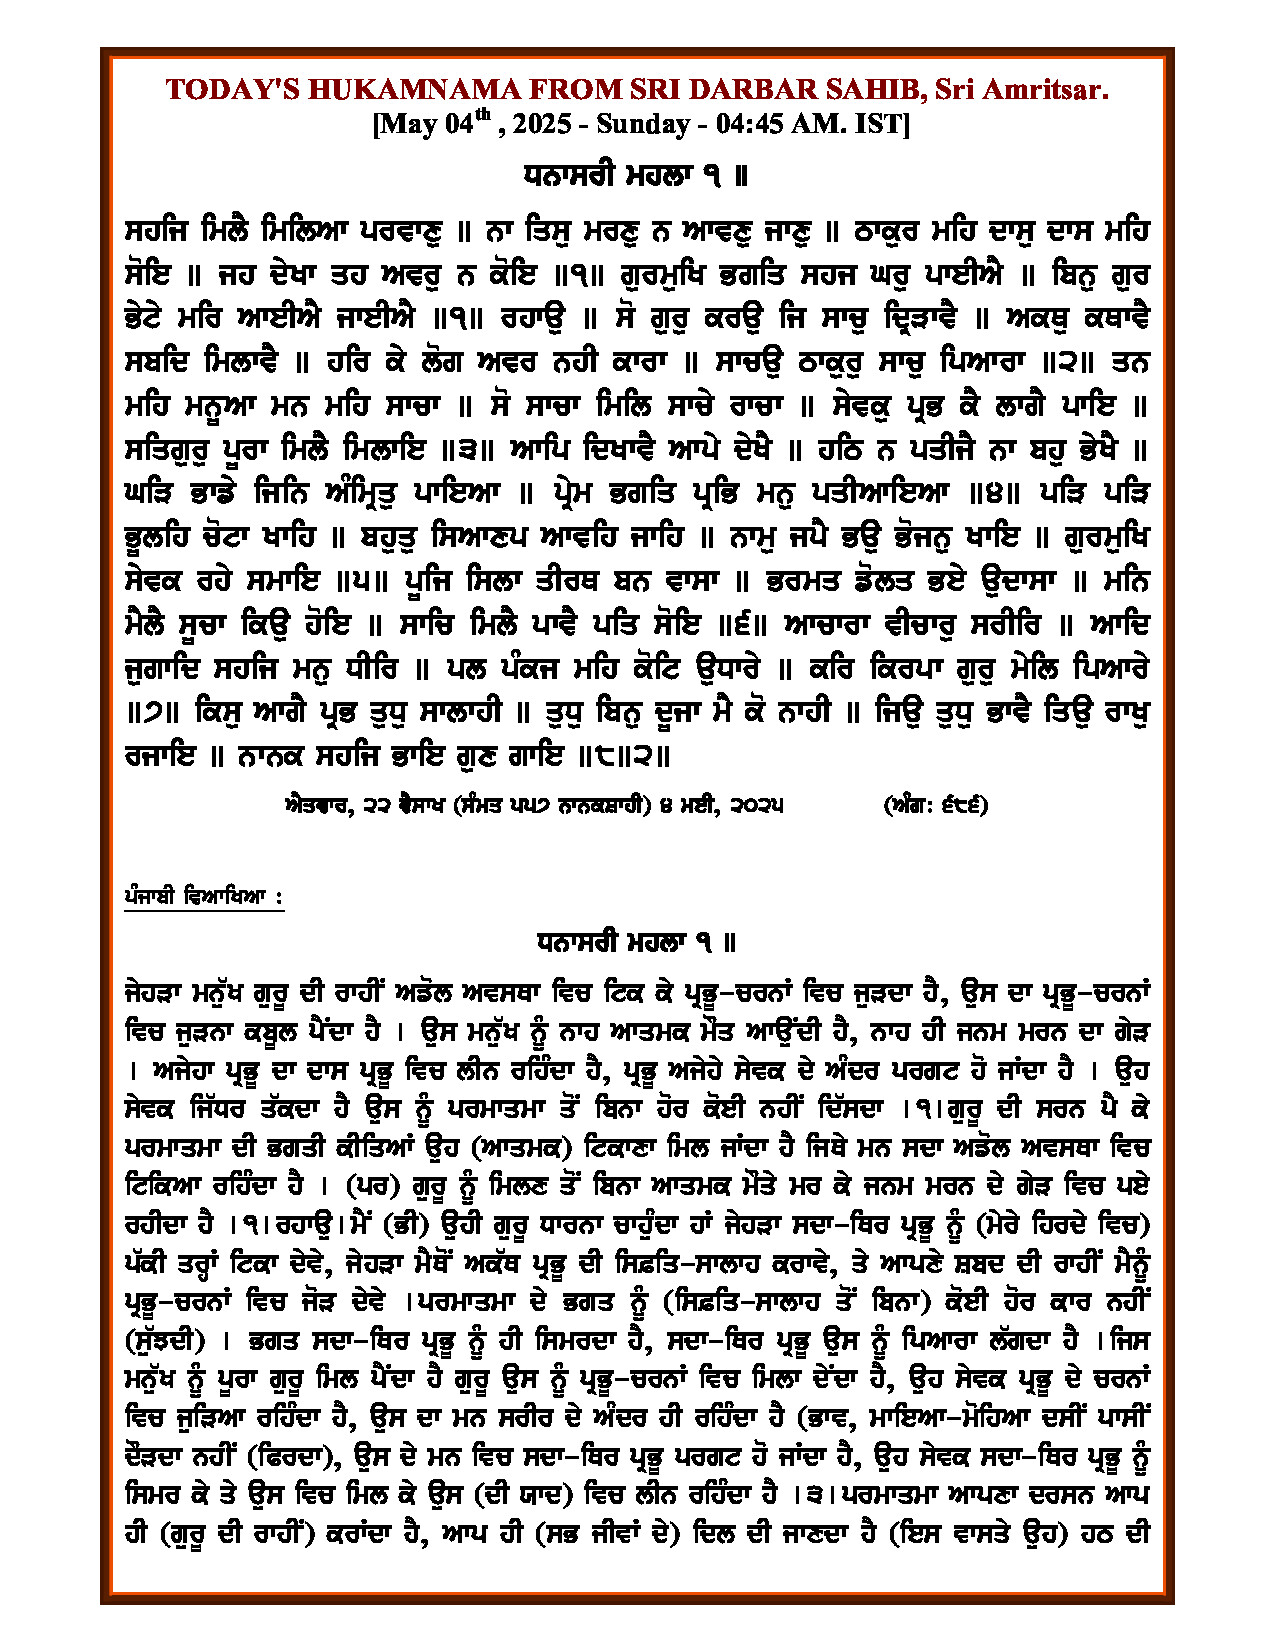 TODAY'S HUKAMNAMA FROM SRI DARBAR SAHIB, Sri Amritsar.
[May 04th , 2025 - Sunday - 04:45 AM. IST]
ਧਨਾਸਰੀ ਮਹਲਾ ੧ ॥
ਸਹਜਿ ਮਿਲੈ ਮਿਲਿਆ ਪਰਵਾਣੁ ॥ ਨਾ ਤਿਸੁ ਮਰਣੁ ਨ ਆਵਣੁ ਜਾਣੁ ॥ ਠਾਕੁਰ ਮਹਿ ਦਾਸੁ ਦਾਸ ਮਹਿ
ਸੋਇ ॥ ਜਹ ਦੇਖਾ ਤਹ ਅਵਰੁ ਨ ਕੋਇ ॥੧॥ ਗੁਰਮੁਖਿ ਭਗਤਿ ਸਹਜ ਘਰੁ ਪਾਈਐ ॥ ਬਿਨੁ ਗੁਰ
ਭੇਟੇ ਮਰਿ ਆਈਐ ਜਾਈਐ ॥੧॥ ਰਹਾਉ ॥ ਸੋ ਗੁਰੁ ਕਰਉ ਜਿ ਸਾਚੁ ਦ੍ਰਿੜਾਵੈ ॥ ਅਕਥੁ ਕਥਾਵੈ
ਸਬਦਿ ਮਿਲਾਵੈ ॥ ਹਰਿ ਕੇ ਲੋਗ ਅਵਰ ਨਹੀ ਕਾਰਾ ॥ ਸਾਚਉ ਠਾਕੁਰੁ ਸਾਚੁ ਪਿਆਰਾ ॥੨॥ ਤਨ
ਮਹਿ ਮਨੂਆ ਮਨ ਮਹਿ ਸਾਚਾ ॥ ਸੋ ਸਾਚਾ ਮਿਲਿ ਸਾਚੇ ਰਾਚਾ ॥ ਸੇਵਕੁ ਪ੍ਰਭ ਕੈ ਲਾਗੈ ਪਾਇ ॥
ਸਤਿਗੁਰੁ ਪੂਰਾ ਮਿਲੈ ਮਿਲਾਇ ॥੩॥ ਆਪਿ ਦਿਖਾਵੈ ਆਪੇ ਦੇਖੈ ॥ ਹਠਿ ਨ ਪਤੀਜੈ ਨਾ ਬਹੁ ਭੇਖੈ ॥
ਘੜਿ ਭਾਡੇ ਜਿਨਿ ਅੰਮ੍ਰਿਤੁ ਪਾਇਆ ॥ ਪ੍ਰੇਮ ਭਗਤਿ ਪ੍ਰਭਿ ਮਨੁ ਪਤੀਆਇਆ ॥੪॥ ਪੜਿ ਪੜਿ
ਭੂਲਹਿ ਚੋਟਾ ਖਾਹਿ ॥ ਬਹੁਤੁ ਸਿਆਣਪ ਆਵਹਿ ਜਾਹਿ ॥ ਨਾਮੁ ਜਪੈ ਭਉ ਭੋਜਨੁ ਖਾਇ ॥ ਗੁਰਮੁਖਿ
ਸੇਵਕ ਰਹੇ ਸਮਾਇ ॥੫॥ ਪੂਜਿ ਸਿਲਾ ਤੀਰਥ ਬਨ ਵਾਸਾ ॥ ਭਰਮਤ ਡੋਲਤ ਭਏ ਉਦਾਸਾ ॥ ਮਨਿ
ਮੈਲੈ ਸੂਚਾ ਕਿਉ ਹੋਇ ॥ ਸਾਚਿ ਮਿਲੈ ਪਾਵੈ ਪਤਿ ਸੋਇ ॥੬॥ ਆਚਾਰਾ ਵੀਚਾਰੁ ਸਰੀਰਿ ॥ ਆਦਿ
ਜੁਗਾਦਿ ਸਹਜਿ ਮਨੁ ਧੀਰਿ ॥ ਪਲ ਪੰਕਜ ਮਹਿ ਕੋਟਿ ਉਧਾਰੇ ॥ ਕਰਿ ਕਿਰਪਾ ਗੁਰੁ ਮੇਲਿ ਪਿਆਰੇ
॥੭॥ ਕਿਸੁ ਆਗੈ ਪ੍ਰਭ ਤੁਧੁ ਸਾਲਾਹੀ ॥ ਤੁਧੁ ਬਿਨੁ ਦੂਜਾ ਮੈ ਕੋ ਨਾਹੀ ॥ ਜਿਉ ਤੁਧੁ ਭਾਵੈ ਤਿਉ ਰਾਖੁ
ਰਜਾਇ ॥ ਨਾਨਕ ਸਹਜਿ ਭਾਇ ਗੁਣ ਗਾਇ ॥੮॥੨॥
ਐਤਵਾਰ, ੨੨ ਵੈਸਾਖ (ਸੰਮਤ ੫੫੭ ਨਾਨਕਸ਼ਾਹੀ) ੪ ਮਈ, ੨੦੨੫ (ਅੰਗ: ੬੮੬)
ਪੰਜਾਬੀ ਵਿਆਖਿਆ :
ਧਨਾਸਰੀ ਮਹਲਾ ੧ ॥
ਜੇਹੜਾ ਮਨੁੱਖ ਗੁਰੂ ਦੀ ਰਾਹੀਂ ਅਡੋਲ ਅਵਸਥਾ ਵਿਚ ਟਿਕ ਕੇ ਪ੍ਰਭੂ-ਚਰਨਾਂ ਵਿਚ ਜੁੜਦਾ ਹੈ, ਉਸ ਦਾ ਪ੍ਰਭੂ-ਚਰਨਾਂ
ਵਿਚ ਜੁੜਨਾ ਕਬੂਲ ਪੈਂਦਾ ਹੈ । ਉਸ ਮਨੁੱਖ ਨੂੰ ਨਾਹ ਆਤਮਕ ਮੌਤ ਆਉਂਦੀ ਹੈ, ਨਾਹ ਹੀ ਜਨਮ ਮਰਨ ਦਾ ਗੇੜ
। ਅਜੇਹਾ ਪ੍ਰਭੂ ਦਾ ਦਾਸ ਪ੍ਰਭੂ ਵਿਚ ਲੀਨ ਰਹਿੰਦਾ ਹੈ, ਪ੍ਰਭੂ ਅਜੇਹੇ ਸੇਵਕ ਦੇ ਅੰਦਰ ਪਰਗਟ ਹੋ ਜਾਂਦਾ ਹੈ । ਉਹ
ਸੇਵਕ ਜਿੱਧਰ ਤੱਕਦਾ ਹੈ ਉਸ ਨੂੰ ਪਰਮਾਤਮਾ ਤੋਂ ਬਿਨਾ ਹੋਰ ਕੋਈ ਨਹੀਂ ਦਿੱਸਦਾ ।੧।ਗੁਰੂ ਦੀ ਸਰਨ ਪੈ ਕੇ
ਪਰਮਾਤਮਾ ਦੀ ਭਗਤੀ ਕੀਤਿਆਂ ਉਹ (ਆਤਮਕ) ਟਿਕਾਣਾ ਮਿਲ ਜਾਂਦਾ ਹੈ ਜਿਥੇ ਮਨ ਸਦਾ ਅਡੋਲ ਅਵਸਥਾ ਵਿਚ
ਟਿਕਿਆ ਰਹਿੰਦਾ ਹੈ । (ਪਰ) ਗੁਰੂ ਨੂੰ ਮਿਲਣ ਤੋਂ ਬਿਨਾ ਆਤਮਕ ਮੌਤੇ ਮਰ ਕੇ ਜਨਮ ਮਰਨ ਦੇ ਗੇੜ ਵਿਚ ਪਏ
ਰਹੀਦਾ ਹੈ ।੧।ਰਹਾਉ।ਮੈਂ (ਭੀ) ਉਹੀ ਗੁਰੂ ਧਾਰਨਾ ਚਾਹੁੰਦਾ ਹਾਂ ਜੇਹੜਾ ਸਦਾ-ਥਿਰ ਪ੍ਰਭੂ ਨੂੰ (ਮੇਰੇ ਹਿਰਦੇ ਵਿਚ)
ਪੱਕੀ ਤਰ੍ਹਾਂ ਟਿਕਾ ਦੇਵੇ, ਜੇਹੜਾ ਮੈਥੋਂ ਅਕੱਥ ਪ੍ਰਭੂ ਦੀ ਸਿਫ਼ਤਿ-ਸਾਲਾਹ ਕਰਾਵੇ, ਤੇ ਆਪਣੇ ਸ਼ਬਦ ਦੀ ਰਾਹੀਂ ਮੈਨੂੰ
ਪ੍ਰਭੂ-ਚਰਨਾਂ ਵਿਚ ਜੋੜ ਦੇਵੇ ।ਪਰਮਾਤਮਾ ਦੇ ਭਗਤ ਨੂੰ (ਸਿਫ਼ਤਿ-ਸਾਲਾਹ ਤੋਂ ਬਿਨਾ) ਕੋਈ ਹੋਰ ਕਾਰ ਨਹੀਂ
(ਸੁੱਝਦੀ) । ਭਗਤ ਸਦਾ-ਥਿਰ ਪ੍ਰਭੂ ਨੂੰ ਹੀ ਸਿਮਰਦਾ ਹੈ, ਸਦਾ-ਥਿਰ ਪ੍ਰਭੂ ਉਸ ਨੂੰ ਪਿਆਰਾ ਲੱਗਦਾ ਹੈ ।ਜਿਸ
ਮਨੁੱਖ ਨੂੰ ਪੂਰਾ ਗੁਰੂ ਮਿਲ ਪੈਂਦਾ ਹੈ ਗੁਰੂ ਉਸ ਨੂੰ ਪ੍ਰਭੂ-ਚਰਨਾਂ ਵਿਚ ਮਿਲਾ ਦੇਂਦਾ ਹੈ, ਉਹ ਸੇਵਕ ਪ੍ਰਭੂ ਦੇ ਚਰਨਾਂ
ਵਿਚ ਜੁੜਿਆ ਰਹਿੰਦਾ ਹੈ, ਉਸ ਦਾ ਮਨ ਸਰੀਰ ਦੇ ਅੰਦਰ ਹੀ ਰਹਿੰਦਾ ਹੈ (ਭਾਵ, ਮਾਇਆ-ਮੋਹਿਆ ਦਸੀਂ ਪਾਸੀਂ
ਦੌੜਦਾ ਨਹੀਂ (ਫਿਰਦਾ), ਉਸ ਦੇ ਮਨ ਵਿਚ ਸਦਾ-ਥਿਰ ਪ੍ਰਭੂ ਪਰਗਟ ਹੋ ਜਾਂਦਾ ਹੈ, ਉਹ ਸੇਵਕ ਸਦਾ-ਥਿਰ ਪ੍ਰਭੂ ਨੂੰ
ਸਿਮਰ ਕੇ ਤੇ ਉਸ ਵਿਚ ਮਿਲ ਕੇ ਉਸ (ਦੀ ਯਾਦ) ਵਿਚ ਲੀਨ ਰਹਿੰਦਾ ਹੈ ।੩।ਪਰਮਾਤਮਾ ਆਪਣਾ ਦਰਸਨ ਆਪ
ਹੀ (ਗੁਰੂ ਦੀ ਰਾਹੀਂ) ਕਰਾਂਦਾ ਹੈ, ਆਪ ਹੀ (ਸਭ ਜੀਵਾਂ ਦੇ) ਦਿਲ ਦੀ ਜਾਣਦਾ ਹੈ (ਇਸ ਵਾਸਤੇ ਉਹ) ਹਠ ਦੀ